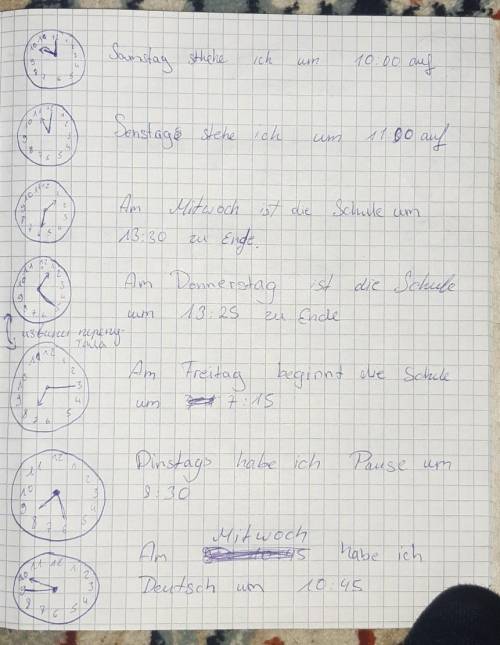 Samstag sthehe ich um 10:00 auf
Sonstags stehe ich um 11:00 auf
Am Mitwoch ist die Schule um
13:30 zu Ende.
Am Donnerstag ist die Schule
um 13:25 zu Ende
извини перепу-
тала
Am Freitag beginnt die Schule
um 7:15
Dinstags habe ich Pause um
9:30
Am Mitwoch habe ich
Deutsch um 10:45